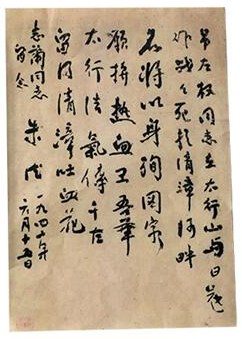 吊左权同志在太行山与日寇
作战々死於清漳河畔
名将以身殉国家
愿拼热血卫吾華
太行浩氣傳千古
留得清漳吐血花
朱德
一九四二年
六月十五日
志蘭同志
留念